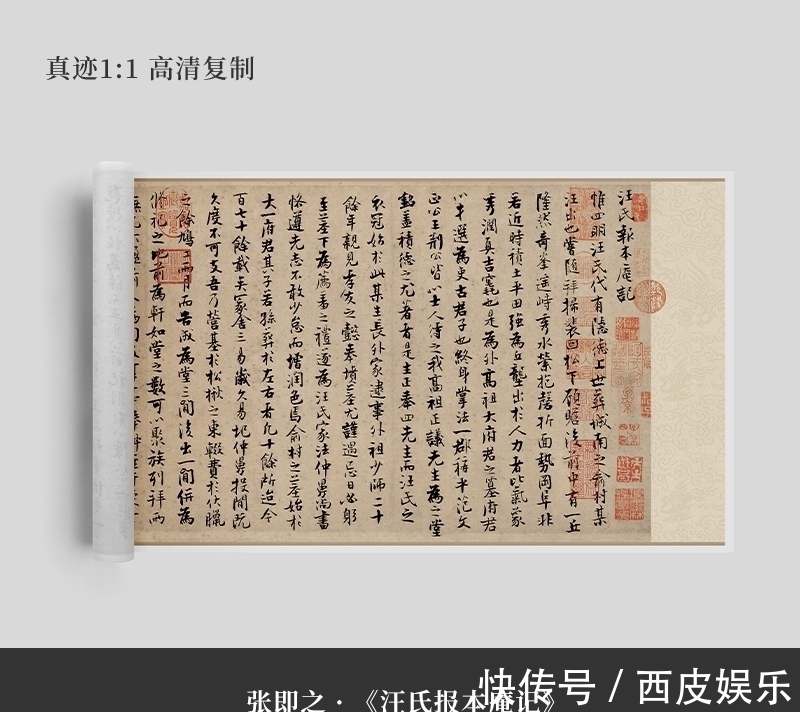 真迹1:1 高清复制
汪氏報本庵記
惟四明汪氏代有隱德上世葬城南之俞村某
汪出也嘗隨拜掃裴回松下顧瞻後前中有一丘
隆然奇峯遥峙秀水縈抱磬折面勢岡阜非
若近時積土平田強為丘壟出於人力者比氣象
秀潤真吉竁也是為外高祖大府君之墓府君
以才選為吏古君子也終身掌法一郡稱平范文
正公王荊公皆以士人待之我高祖正議先生為之堂
銘盡積德之尤著者是生正奉四先生而汪氏之
衣冠始於此某生長外家逮事外祖少師二十
餘年親見孝友之懿奉墳墓尤謹遇忌日必躬
至墓下為薦羞之禮遂為汪氏家法仲舅尚書
恪遵先志不敢少怠而增潤色焉俞村之墓始於
大一府君其子若孫葬於左右者凡十餘所迨今
百七十餘載矣冢舍三易歲久易圮仲舅投閒既
久度不可支吾乃營基於松楸之東輟費於伏臘
之餘鳩工兩月而告成為堂三間後出一間併為
修祀之地前為軒如堂之數可以聚族列拜雨
张即之·《汪氏报本庵记》
快传号 / 西皮娱乐